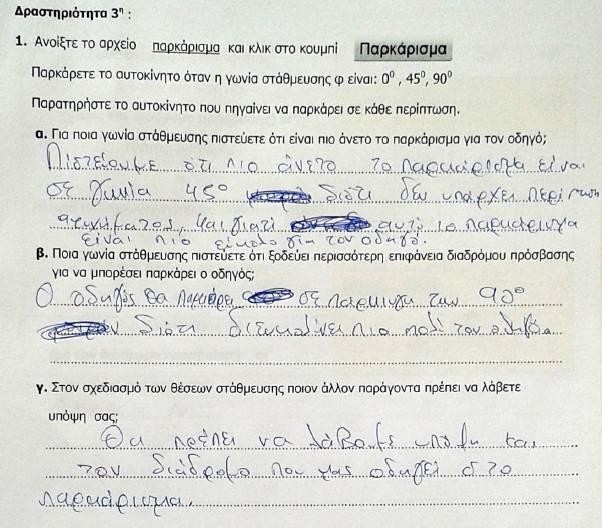 Δραστηριότητα 3η :
1. Ανοίξτε το αρχείο παρκάρισμα και κλικ στο κουμπί Παρκάρισμα
Παρκάρετε το αυτοκίνητο όταν η γωνία στάθμευσης φ είναι: 0⁰ , 45⁰, 90⁰
Παρατηρήστε το αυτοκίνητο που πηγαίνει να παρκάρει σε κάθε περίπτωση.
α. Για ποια γωνία στάθμευσης πιστεύετε ότι είναι πιο άνετο το παρκάρισμα για τον οδηγό;
Πιστεύουμε ότι πιο άνετο το παρκάρισμα είναι
σε γωνία 45⁰ διότι δεν υπάρχει
ατυχήματος, και γιατί αυτό το παρκάρισμα
είναι πιο εύκολο για τον οδηγό.
β. Ποια γωνία στάθμευσης πιστεύετε ότι ξοδεύει περισσότερη επιφάνεια διαδρόμου πρόσβασης
για να μπορέσει παρκάρει ο οδηγός;
Ο οδηγός θα παρκάρει σε των 90⁰
διότι διευκολύνει πιο πολύ τον οδηγό.
γ. Στον σχεδιασμό των θέσεων στάθμευσης ποιον άλλον παράγοντα πρέπει να λάβετε
υπόψη σας;
Θα πρέπει να λάβομε υπόψη και
τον διάδρομο που μας οδηγεί στο
παρκάρισμα.